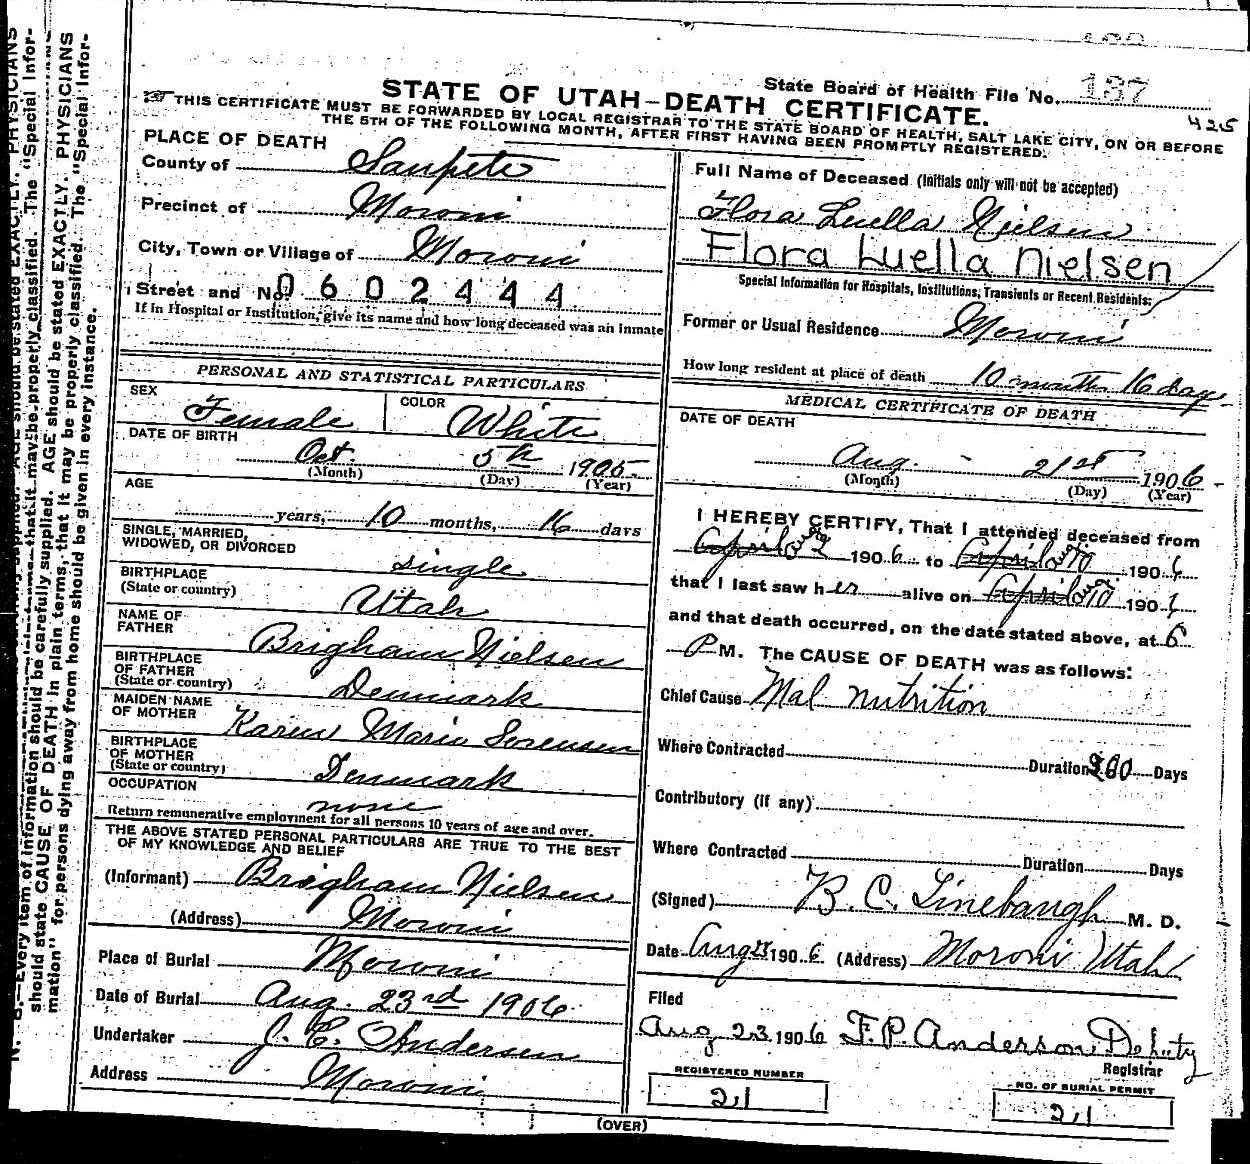 State Board of Health File No. 137
425
STATE OF UTAH-DEATH CERTIFICATE.
THIS CERTIFICATE MUST BE FORWARDED BY LOCAL REGISTRAR TO THE STATE BOARD OF HEALTH, SALT LAKE CITY, ON OR BEFORE
THE 5TH OF THE FOLLOWING MONTH, AFTER FIRST HAVING BEEN PROMPTLY REGISTERED.
PLACE OF DEATH
County of Sanpete
Precinct of Moroni
City, Town or Village of Moroni
Street and No. 0602444
If in Hospital or Institution, give its name and how long deceased was an inmate
PERSONAL AND STATISTICAL PARTICULARS
SEX Female COLOR White
DATE OF BIRTH
Oct. 5th 1905
(Month) (Day) (Year)
AGE
years, 10 months, 16 days
SINGLE, MARRIED,
WIDOWED, OR DIVORCED single
BIRTHPLACE
(State or country) Utah
NAME OF
FATHER Brigham Nielsen
BIRTHPLACE
OF FATHER
(State or country) Denmark
MAIDEN NAME
OF MOTHER Karen Marie Sorensen
BIRTHPLACE
OF MOTHER
(State or country) Denmark
OCCUPATION
none
Return remunerative employment for all persons 10 years of age and over.
THE ABOVE STATED PERSONAL PARTICULARS ARE TRUE TO THE BEST
OF MY KNOWLEDGE AND BELIEF
(Informant) Brigham Nielsen
(Address) Moroni
Place of Burial Moroni
Date of Burial Aug. 23rd 1906
Undertaker J. C. Andersen
Address Moroni
Full Name of Deceased (Initials only will not be accepted)
Flora Luella Nielsen
Flora Luella Nielsen
Special Information for Hospitals, Institutions, Transients or Recent Residents;
Former or Usual Residence Moroni
How long resident at place of death 10 months 16 days
MEDICAL CERTIFICATE OF DEATH
DATE OF DEATH
Aug. - 21st 1906
(Month) (Day) (Year)
I HEREBY CERTIFY, That I attended deceased from
April Aug 2 1906 to April Aug. 10 1906
that I last saw her alive on April Aug 10 1906
and that death occurred, on the date stated above, at 6
P M. The CAUSE OF DEATH was as follows:
Chief Cause Mal nutrition
Where Contracted Duration 300 Days
Contributory (if any)
Where Contracted Duration Days
(Signed) B. C. Linebaugh M. D.
Date Aug 1906 (Address) Moroni Utah
Filed
Aug 23 1906 F. P. Anderson, Deputy
Registrar
REGISTERED NUMBER
21
NO. OF BURIAL PERMIT
21
(OVER)
N. B.—Every item of information should be carefully supplied. AGE should be stated EXACTLY. PHYSICIANS
should state CAUSE OF DEATH in plain terms, that it may be properly classified. The "Special Infor-
mation" for persons dying away from home should be given in every instance.